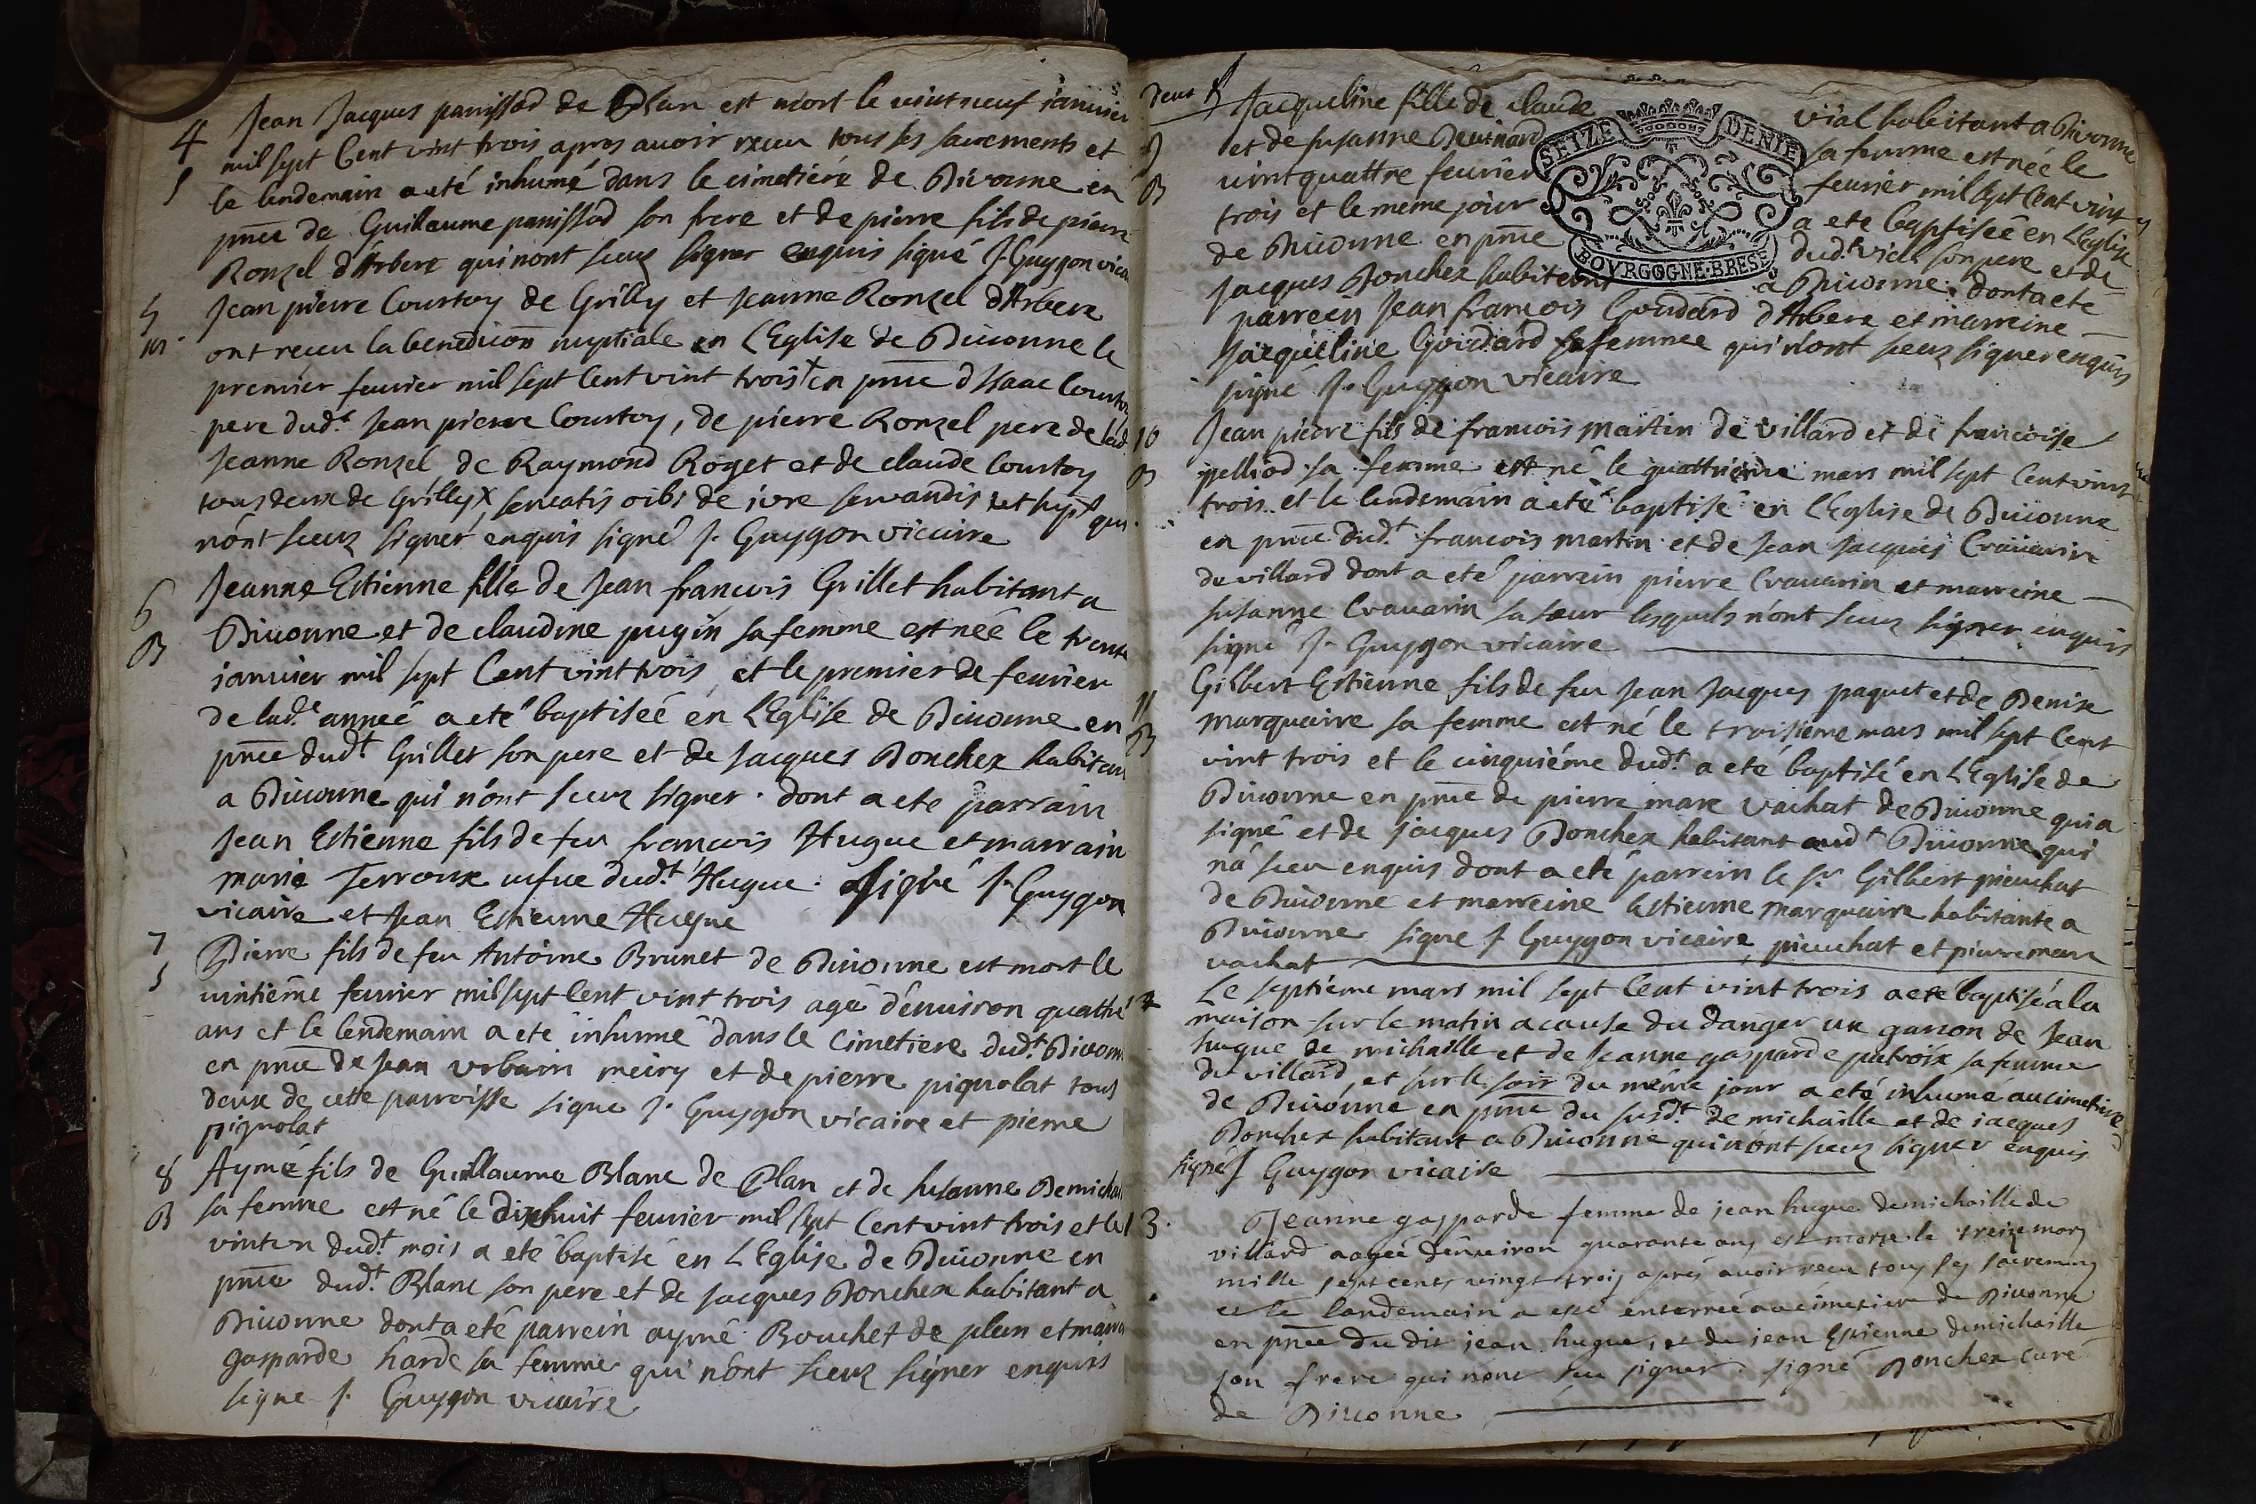 4
S
Jean Jacques panissod de Plan est mort le vint neuf ianuier
mil sept Cent vint trois apres auoir receu tous les sacrements et
le lendemain a eté inhumé dans le cimetiére de Diuonne en
pnce de Guillaume panissod son frere et de pierre fils de pierre
Ronzel d'Arbere qui n'ont sceuz signer enquis signé J. Guygon vicai
5
m.
Jean pierre Courtoy de Grilly et Jeanne Ronzel d'Arbere
ont receu la benedicon nuptiale en L'Eglise de Diuonne le
premier feurier mil sept Cent vint trois + en pnce d'Isaac Courtoy
pere dud.t Jean pierre Courtoy, de pierre Ronzel pere de lad.
Jeanne Ronzel, de Raymond Roget et de claude Courtoy
tous deux de Grilly x seruatis oibs de iure seruandis qui
n'ont sceuz signer enquis signé J. Guygon vicaire
6
B
Jeanne Estienne fille de Jean francois Grillet habitant a
Diuonne et de claudine pugin sa femme est néé le trente
ianuier mil sept Cent vint trois et le premier de feurier
de lad.e anneé a eté baptiséé en L'Eglise de Diuonne en
pnce dud.t Grillet son pere et de Jacques Donchex habitan
a Diuonne qui n'ont sceuz signer. dont a ete parrain
Jean Estienne fils de feu francois Hugue et marrain
marie Terroux uefue dud.t Hugue. signé J. Guygon
vicaire et Jean Estienne Hugue
7
S
Pierre fils de feu Antoine Brunet de Diuonne est mort le
vintiéme feurier mil sept Cent vint trois agé d'enuiron quattre
ans et le lendemain a eté inhumé dans le Cimetiere dud.t Diuonne
en pnce de Jean vrbain meiry et de pierre pignolat tous
deux de cette parroisse signe J. Guygon vicaire et pierre
pignolat
8
B
Aymé fils de Guillaume Blanc de Plan et de Susanne Demichail
sa femme est né le dixhuit feurier mil sept Cent vint trois et le
vint dud.t mois a eté baptisé en L'Eglise de Diuonne en
pnce dud.t Blanc son pere et de Jacques Donchex habitant a
Diuonne dont a eté parrein aymé Bouchet de plan et marr
gasparde harde sa femme qui n'ont sceuz signer enquis
signe J. Guygon vicaire
deux
9
B
Jacqueline fille de claude vial habitant a Diuonne
et de susanne Deuinard sa femme est néé le
vint quattre feurier feurier mil sept Cent vint
trois et le meme jour a ete baptiséé en L'Eglise
de Diuonne en pnce dud.t vial son pere et de
Jacques Donchex habitant a Diuonne. dont a eté
parrein Jean francois Goudard d'Arbere et marreine
Jacqueline Goudard sa femme qui n'ont sceuz signer enquis
signé J. Guygon vicaire
SEIZE DENIE
BOVRGOGNE·BRESE
10
B
Jean pierre fils de francois martin de villard et de francoise
pelliod sa femme est né le quattriéme mars mil sept Cent vint
trois et le lendemain a eté baptisé en L'Eglise de Diuonne
en pnce dud.t francois martin et de Jean Jacques Crauarin
de villard dont a eté parrein pierre Crauarin et marreine
susanne Crauarin sa soeur lesquels n'ont sceuz signer enquis
signé J. Guygon vicaire
11
B
Gilbert Estienne fils de feu Jean Jacques paquet et de Denise
marquaire sa femme est né le troisiéme mars mil sept Cent
vint trois et le cinquiéme dud.t a eté baptisé en L'Eglise de
Diuonne en pnce de pierre marc vachat de Diuonne qui a
signé et de jacques Donchex habitant aud.t Diuonne qui
n'a sceu enquis dont a eté parrein le s.r Gilbert pieuchat
de Diuonne et marreine Estienne Marquaire habitante a
Diuonne signe J Guygon vicaire, pieuchat et pierre marc
vachat
Le septiéme mars mil sept Cent vint trois a eté baptisé a la
maison sur le matin a cause du danger un garson de Jean
hugue de michaille et de Jeanne gasparde patroix sa femme
de villard, et sur le soir du méme jour a eté inhumé au cimetiere
de Diuonne en pnce du susd.t de michaille et de iacques
Donchex habitant a Diuonne qui n'ont sceuz signer enquis
signé J Guygon vicaire
13.
Jeanne gasparde femme de jean hugue demichaille de
villard aageé d'enuiron quarante ans est morte le treize mars
mille sept cents vingt trois apres auoir receu tous les sacremens
et le landemain a esté enterreé au cimetier de Diuonne
en pnce du dit jean hugue, et de jean Estienne demichaille
son frere qui n'ont seu signer. signé Donchex curé
de Diuonne